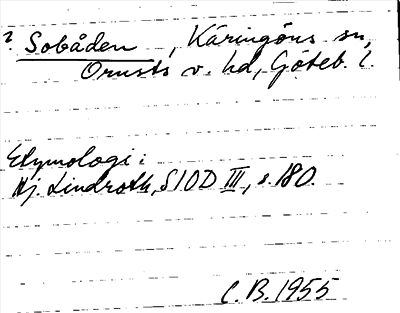 ? Sobåden, Käringöns sn,
Orusts v. hd, Göteb. l.
Etymologi:
Hj. Lindroth, SIOD III, s. 180.
C.B. 1955